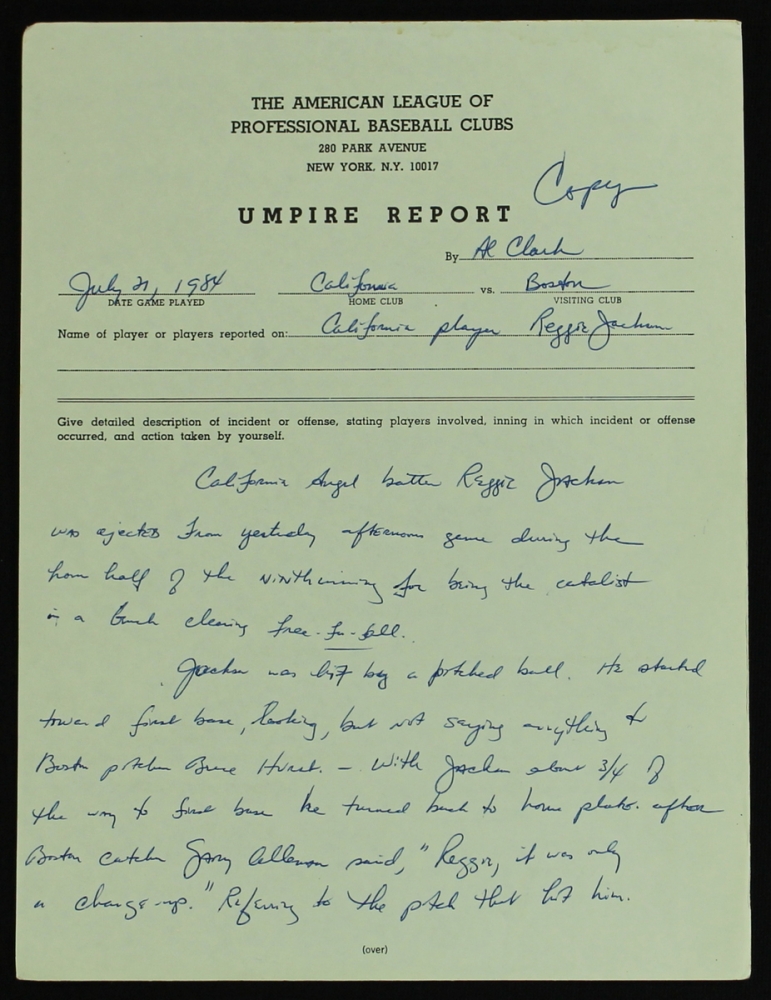 THE AMERICAN LEAGUE OF
PROFESSIONAL BASEBALL CLUBS
280 PARK AVENUE
NEW YORK, N.Y. 10017
Copy
UMPIRE REPORT
By Al Clark
July 21, 1984 California vs. Boston
DATE GAME PLAYED HOME CLUB VISITING CLUB
Name of player or players reported on: California player Reggie Jackson
Give detailed description of incident or offense, stating players involved, inning in which incident or offense
occurred, and action taken by yourself.
California Angel batter Reggie Jackson
was ejected from yesterday afternoons game during the
home half of the ninth inning for being the catalist
in a bench clearing free-for-all.
Jackson was hit by a pitched ball. He started
toward first base, looking, but not saying anything to
Boston pitcher Bruce Hurst. - With Jackson about 3/4 of
the way to first base he turned back to home plate. after
Boston catcher Gary Allenson said, "Reggie, it was only
a change-up." Referring to the pitch that hit him.
(over)